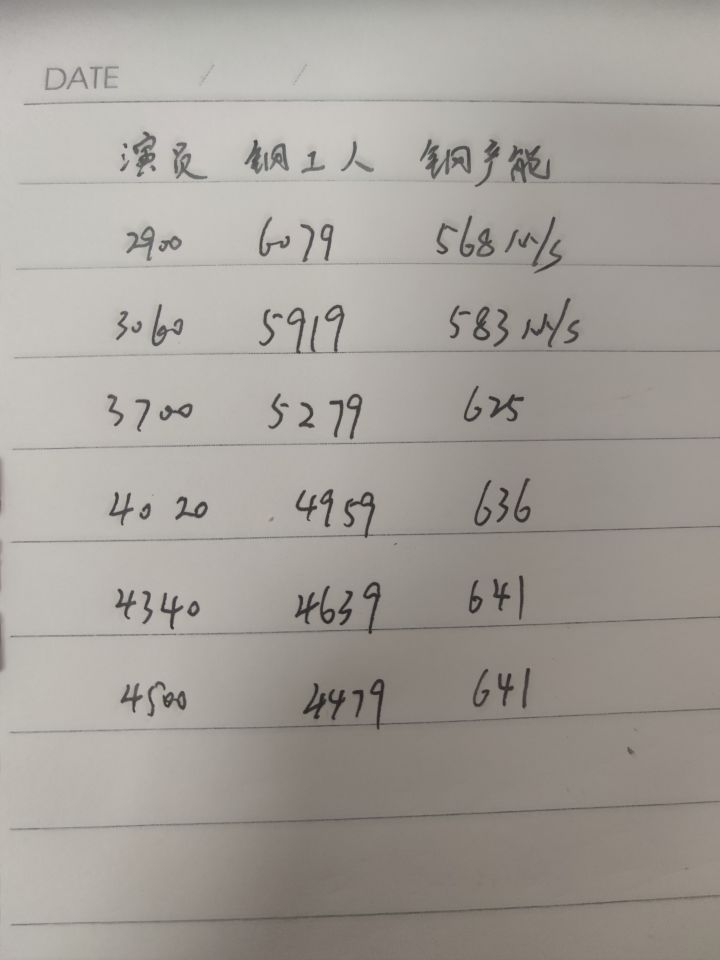 DATE / /
演员 钢工人 钢产能
2900 6079 568M/s
3060 5919 583M/s
3700 5279 625
4020 4959 636
4340 4639 641
4500 4479 641